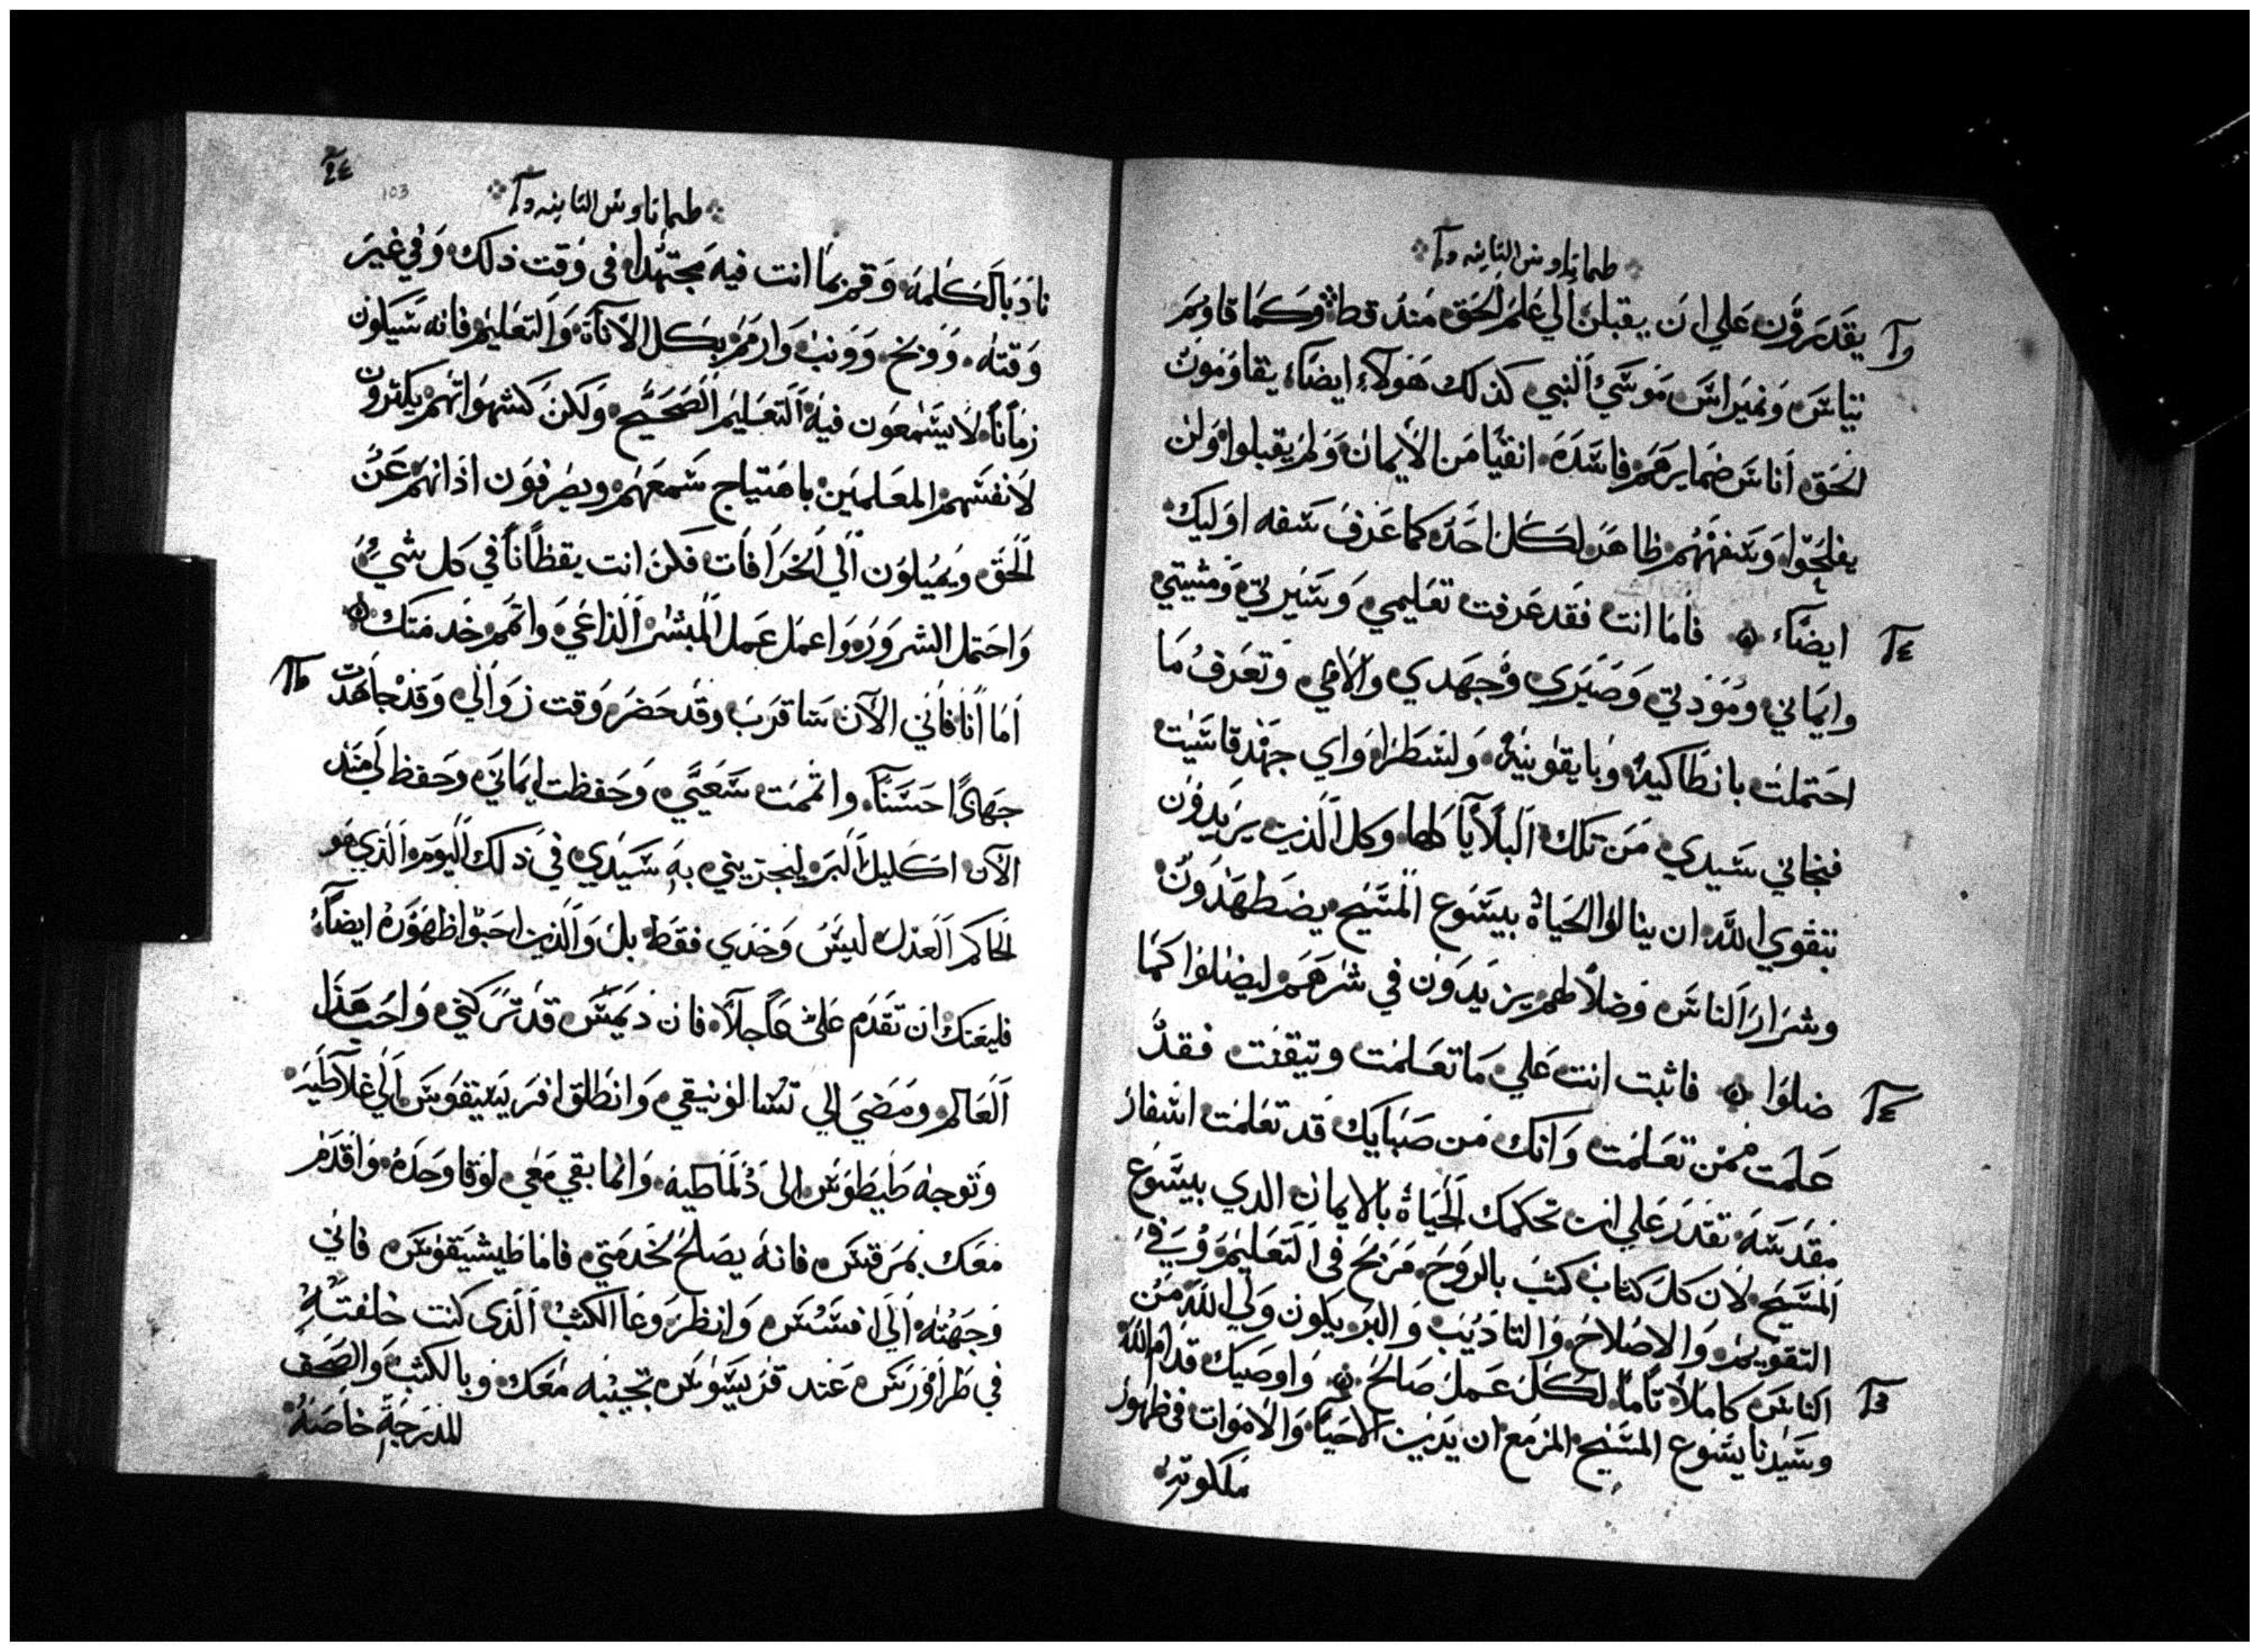 طيماتاوس الثانيه
يقدرون علي ان يقبلن الي علم الحق منذ قط وكما قاوم
يناس ونمبراس موسي النبي كذلك هولاء ايضاء يقاومون
الحق اناس ضمايرهم فاسده انفيا من الايمان ولم يقبلوا ولن
يفلحوا وسفههم ظاهر لكل احد كما عرف سفه اوليك
ايضاء فاما انت فقد عرفت تعليمي وسيرتي ومشيتي
وايماني ومودتي وصبري وجهدي والامي وتعرف ما
احتملت بانطاكيه وبايقونيه ولسطرا واي جهد قاسيت
فنجاني سيدي من تلك البلايا كلها وكل الذين يريدون
بتقوي الله ان ينالوا الحياة بيسوع المسيح يضطهدون
وشرار الناس وضلالهم يزيدون في شرهم ليضلوا كما
ضلوا فاثبت انت علي ما تعلمت وتيقنت فقد
علمت ممن تعلمت وانك من صبايك قد تعلمت اسفار
مقدسه تقدر علي ان تحكمك الحياة بالايمان الدي بيسوع
المسيح لان كل كتاب كتب بالروح مربح في التعليم وفي
التقويم والاصلاح والتاديب والبر يكون ولي الله من
الناس كاملا تاما لكل عمل صالح واوصيك قدام الله
وسيدنا يسوع المسيح المزمع ان يدين الاحيا والاموات في ظهور
ملكوته
103
طيماتاوس الثانيه
ناد بالكلمه وقم بما انت فيه مجتهدا في وقت ذلك وفي غير
وقته ووبخ وونب وارمم بكل الاناة والتعليم فانه سيكون
زمانا لا يسمعون فيه التعليم الصحيح ولكن كشهواتهم يكثرون
لانفسهم المعلمين باهتياج سمعهم ويصرفون اذانهم عن
الحق ويميلون الي الخرافات فكن انت يقظانا في كل شيء
واحتمل الشرور واعمل عمل المبشر الداعي واتمم خدمتك
اما انا فاني الآن ساقرب وقد حضر وقت زوالي وقد جاهدت
جهادا حسنا واتممت سعيي وحفظت ايماني وحفظ لي منذ
الآن اكليل البر ليجزيني به سيدي في ذلك اليوم الذي هو
الحاكم العدل ليس وحدي فقط بل والذين احبوا ظهوره ايضاء
فليعنك ان تقدم علي عاجلا فان ديمس قد تركني واحب هذا
العالم ومضي الي تسالونيقي وانطلق اقريسيقوس الي غلاطيه
وتوجه طيطوس الى دلماطيه وانما بقي معي لوقا وحده واقدم
معك بمرقس فانه يصلح لخدمتي فاما طيشيقوس فاني
وجهته الي افسس وانظر وعا الكتب الذي كنت خلفته
في طراورس عند قربسوس تجيبه معك وبالكتب والصحف
المدرجة خاصة